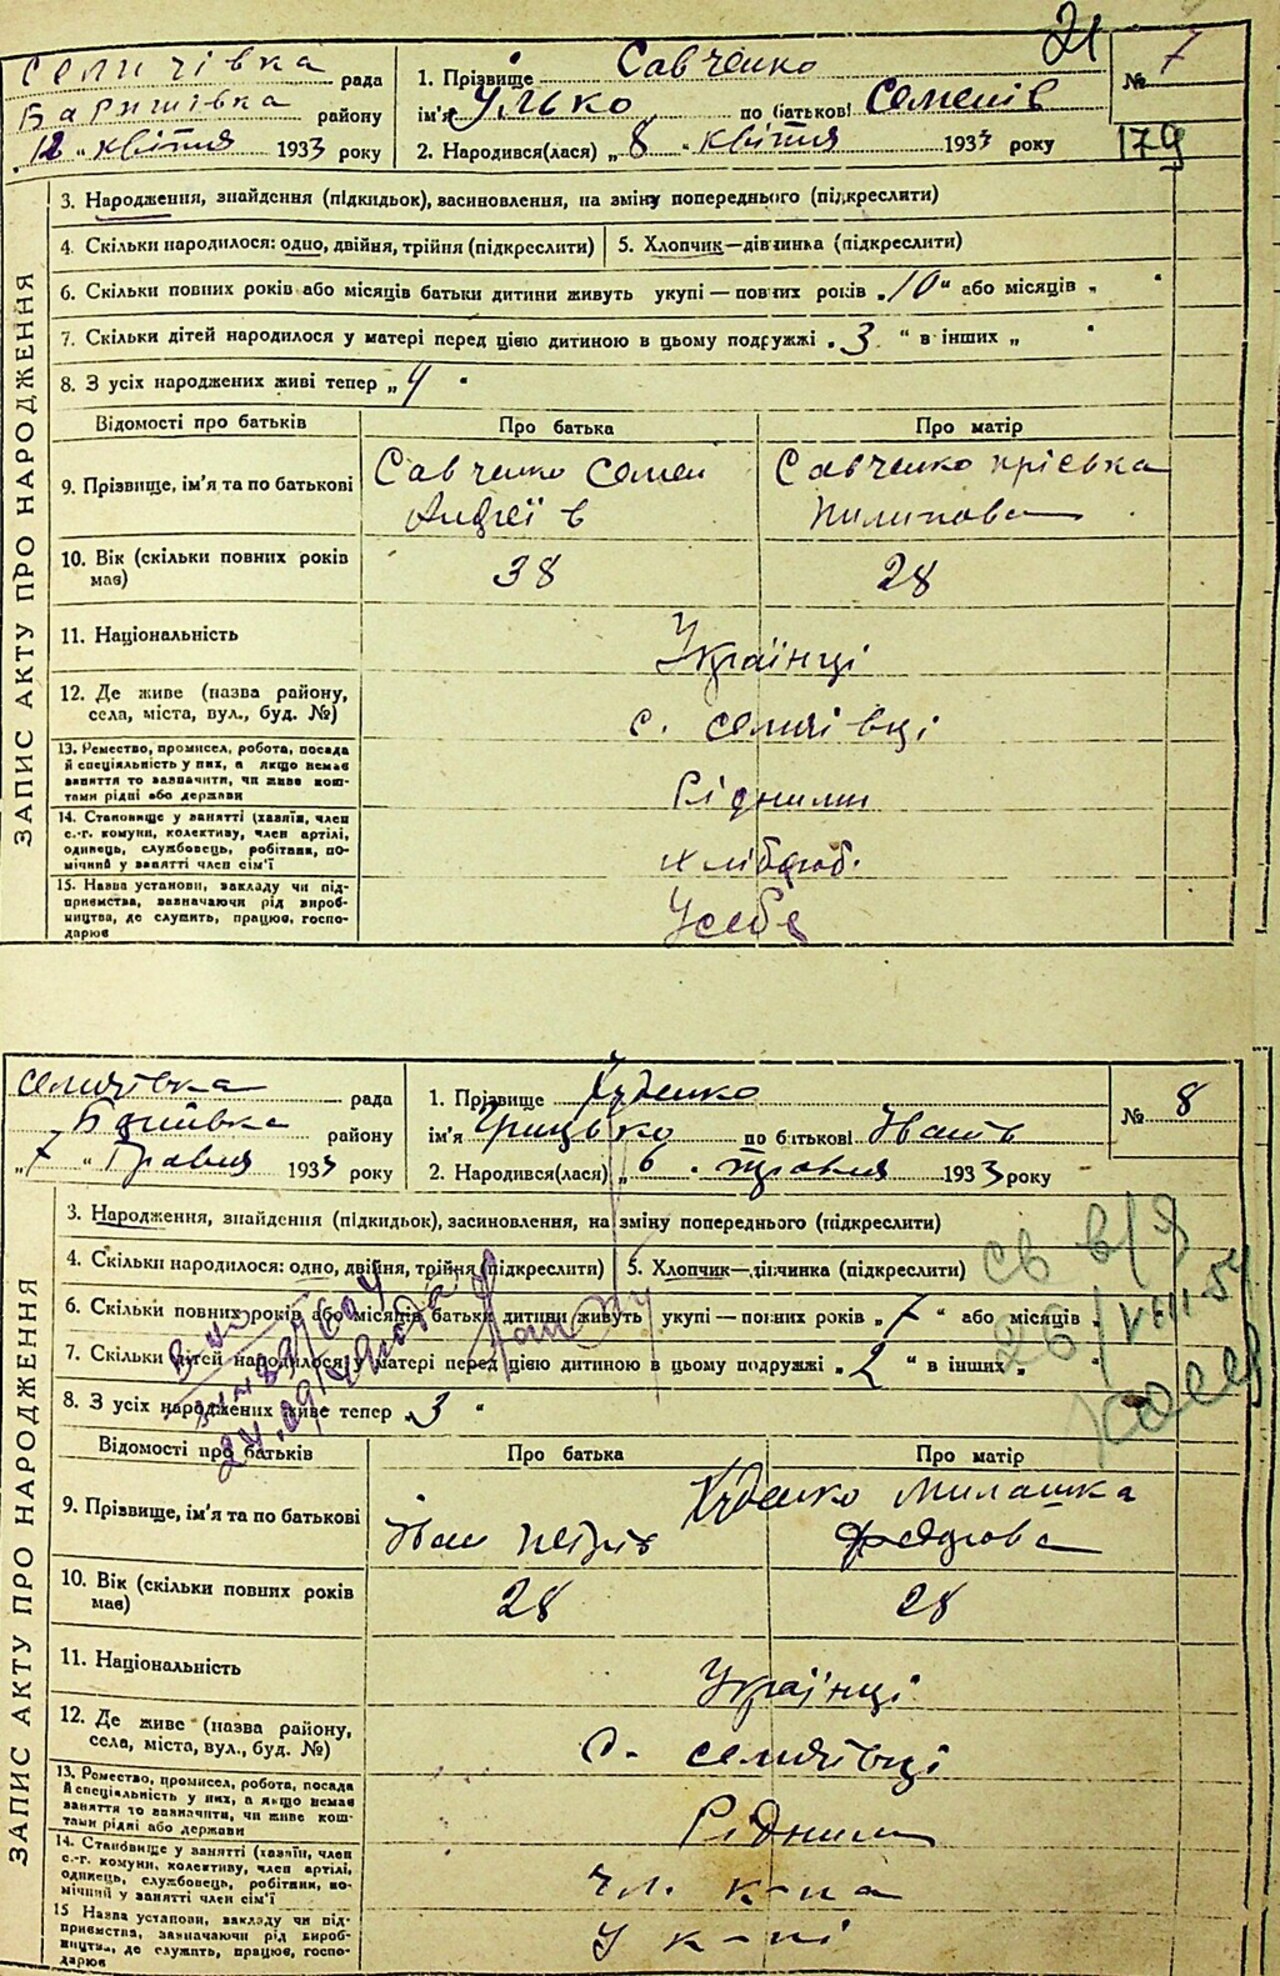 21
Селичівка рада
Баришівка району
„12 “ квітня 1933 року
1. Прізвище Савченко
ім'я Улько по батькові Семенів
2. Народився(лася) „ 8 “ квітня 1933 року
№ 7
179
ЗАПИС АКТУ ПРО НАРОДЖЕННЯ
3. Народження, знайдення (підкидьок), васиновлення, на зміну попереднього (підкреслити)
4. Скільки народилося: одно, двійня, трійня (підкреслити) 5. Хлопчик—дівчинка (підкреслити)
6. Скільки повних років або місяців батьки дитини живуть укупі — повних років „10“ або місяців „ “
7. Скільки дітей народилося у матері перед цією дитиною в цьому подружжі „3 “ в інших „ “
8. З усіх народжених живі тепер „4 “
Відомості про батьків Про батька Про матір
9. Прізвище, ім'я та по батькові Савченко Семен Савченко Прісвка
Андріїв Пилипова
10. Вік (скільки повних років має) 38 28
11. Національність Українці
12. Де живе (назва району, села, міста, вул., буд. №) с. Селичівці
13. Ремество, промисел, робота, посада й спеціяльність у них, а якщо немає заняття то зазначити, чи живе коштами рідні або держави Рідними
14. Становище у занятті (хазяїн, член с.-г. комуни, колективу, член артілі, одинець, службовець, робітник, помічний у занятті член сім'ї хлібороб.
15. Назва установи, закладу чи підприємства, зазначаючи рід виробництва, де служить, працює, господарює У себе
Селичівка рада
району
„7 “ Травня 1933 року
1. Прізвище Худенко
ім'я Грицько по батькові Іванів
2. Народився(лася) „ 6 “ травня 1933 року
№ 8
ЗАПИС АКТУ ПРО НАРОДЖЕННЯ
3. Народження, знайдення (підкидьок), засиновлення, на зміну попереднього (підкреслити)
4. Скільки народилося: одно, двійня, трійня (підкреслити) 5. Хлопчик—дівчинка (підкреслити)
6. Скільки повних років або місяців батьки дитини живуть укупі — повних років „7 “ або місяців „
7. Скільки дітей народилося у матері перед цією дитиною в цьому подружжі „2 “ в інших „ “
8. З усіх народжених живе тепер „3 “
Відомості про батьків Про батька Про матір
9. Прізвище, ім'я та по батькові Худенко Милашка
Іван Петрів Федорова
10. Вік (скільки повних років має) 28 28
11. Національність Українці
12. Де живе (назва району, села, міста, вул., буд. №) с. Селичівці
13. Ремество, промисел, робота, посада й спеціяльність у них, а якщо немає заняття то зазначити, чи живе коштами рідні або держави Рідними
14. Становище у занятті (хазяїн, член с.-г. комуни, колективу, член артілі, одинець, службовець, робітник, помічний у занятті член сім'ї чл. к-па
15 Назва установи, закладу чи підприємства, зазначаючи рід виробництва, де служить, працює, господарює У к-пі